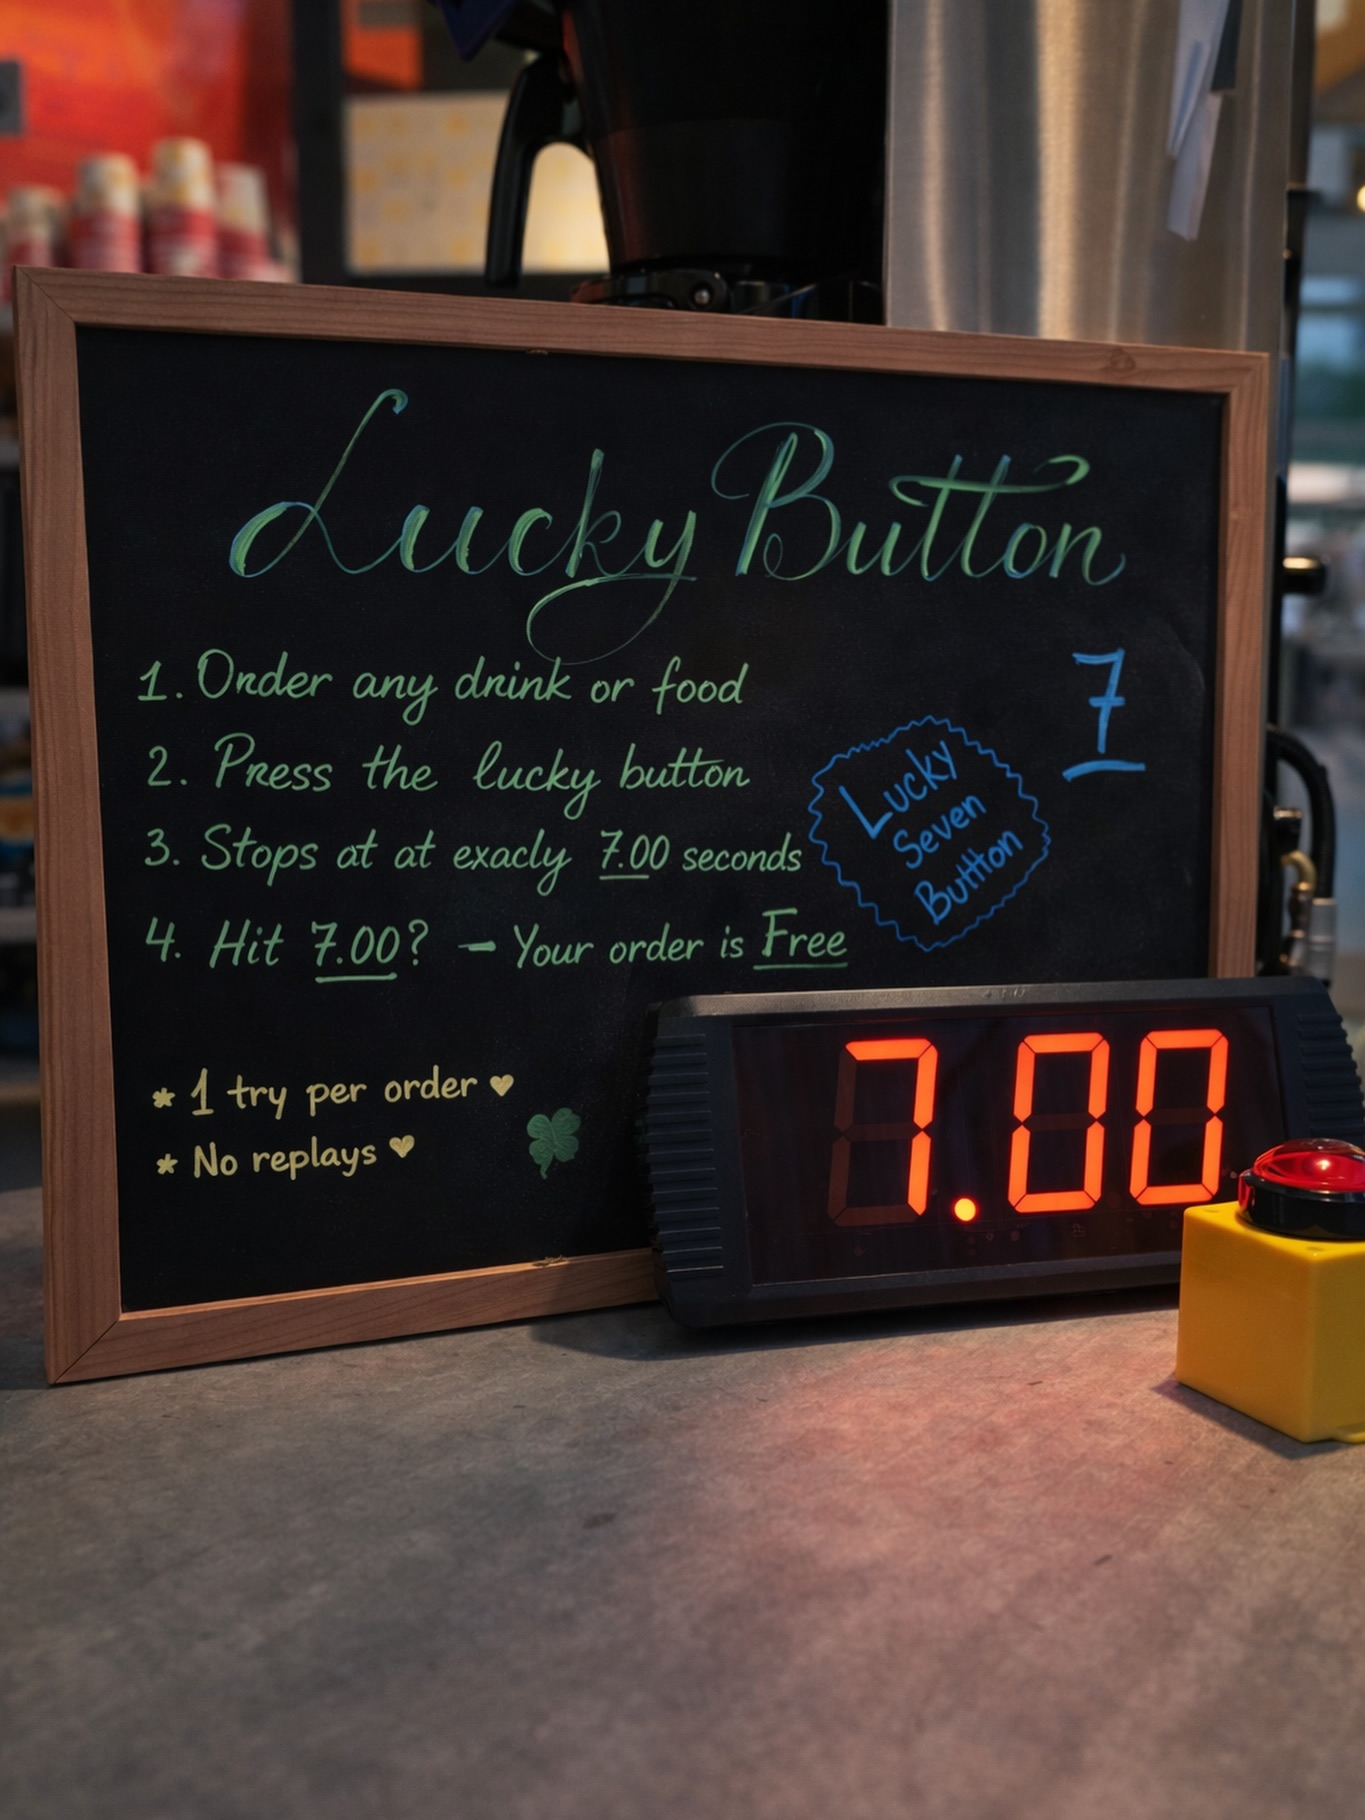 Lucky Button
1. Order any drink or food
2. Press the lucky button
3. Stops at at exacly 7.00 seconds
4. Hit 7.00? – Your order is Free
* 1 try per order ♥
* No replays ♥
7
Lucky
Seven
Buttton
7.00